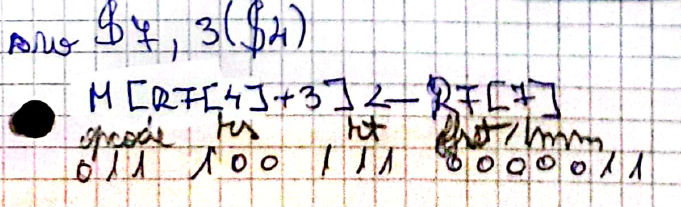 sw $7, 3($4)
M[RF[4]+3] <— RF[7]
opcode rs rt offset/imm
011 100 111 0000011